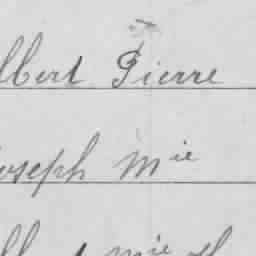 lbert Pierre
oseph Mie
Mie